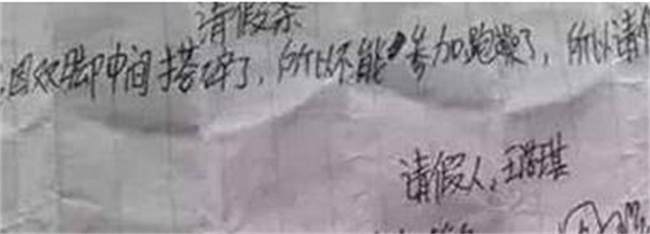 请假条
因双脚中间搭碎了，所以不能参加跑操了，所以请
请假人，王